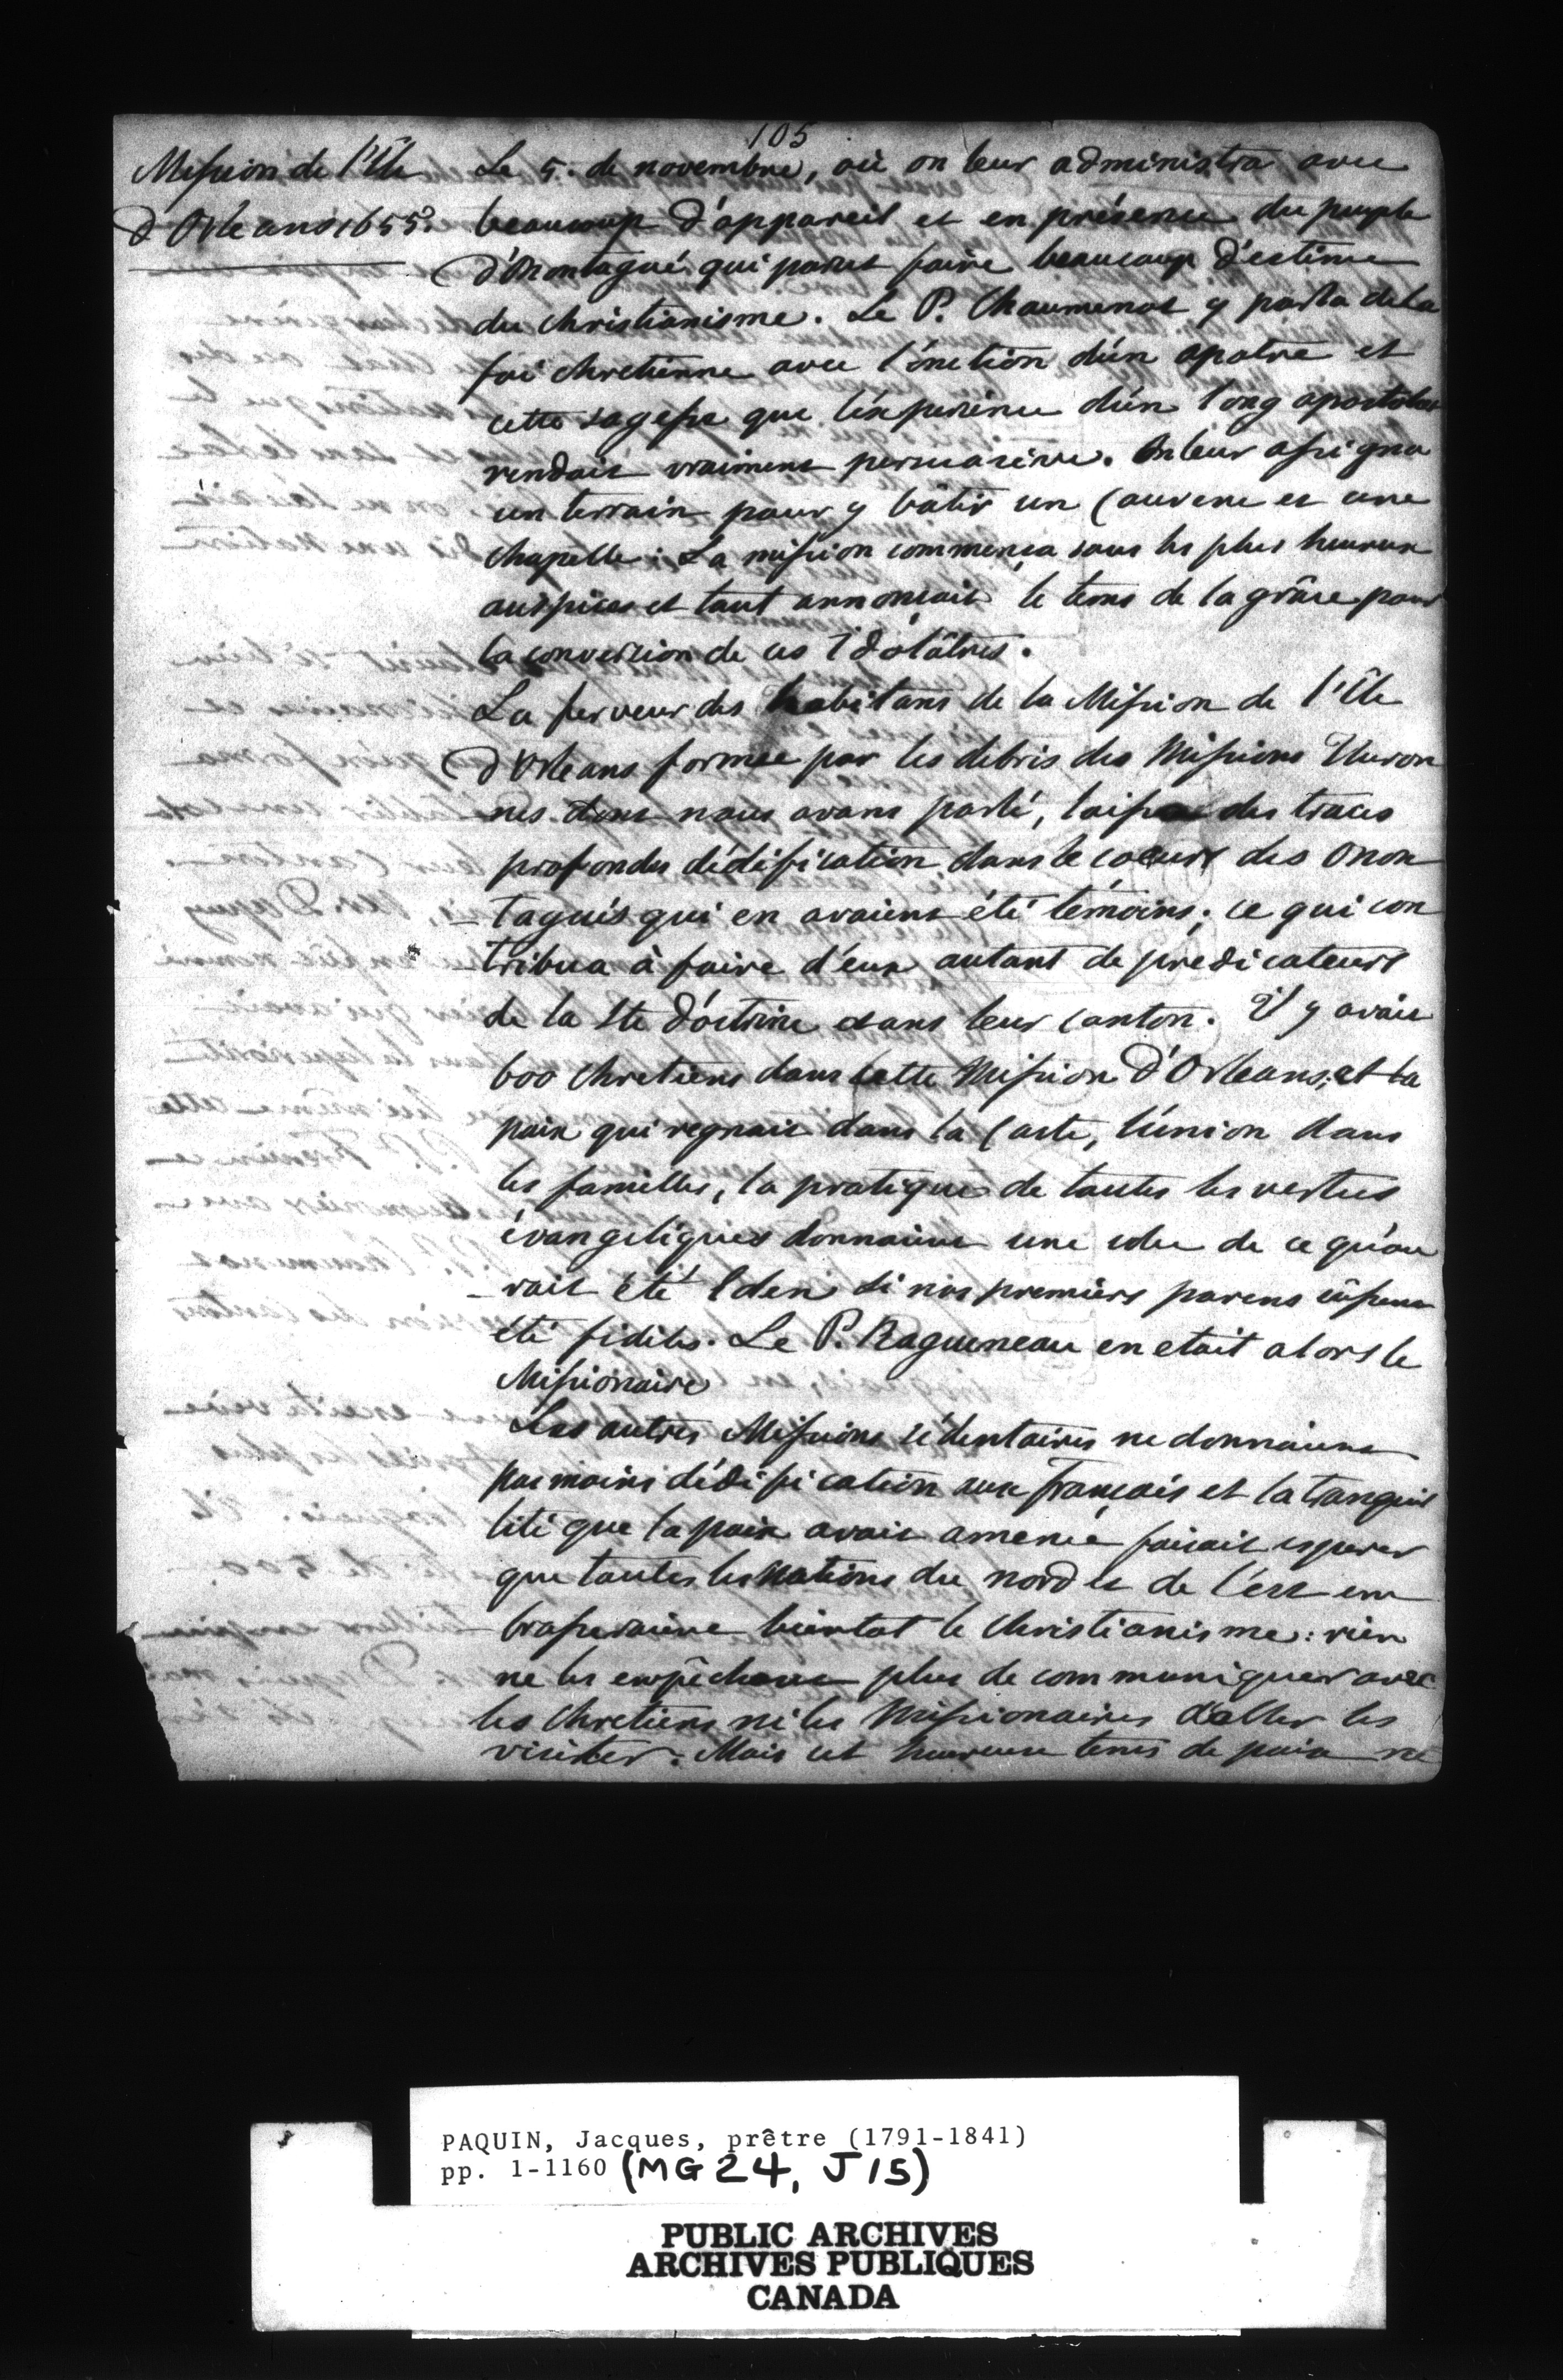 105
Mission de l'Île
d'Orléans 1655.
Le 5. de novembre, où on leur administra avec
beaucoup d'appareil et en présence du peuple
d'Onontagué qui parut faire beaucoup d'estime
du christianisme. Le P. Chaumenot y parla de la
foi chretienne avec l'onction d'un apotre et
cette sagesse que l'expérience d'un long apostolat
rendait vraiment persuasive. On leur assigna
un terrain pour y bâtir un Couvent et une
chapelle. La mission commença sous les plus heureux
auspices et tout annonçait le tems de la grâce pour
la conversion de ces Idolâtres.
La ferveur des habitans de la Mission de l'Île
d'Orleans formée par les debris des Missions Huron
nes dont nous avons parlé, laissa des traces
profondes dédification dans le coeur des Onon
-tagués qui en avaient été témoins; ce qui con
-tribua à faire d'eux autant de prédicateurs
de la Ste doctrine dans leur canton. Il y avait
600 chretiens dans cette Mission d'Orleans, et la
paix qui regnait dans la Caste, l'union dans
les familles, la pratique de toutes les vertus
évangeliques donnaient une idée de ce qu'au
-rait été Eden si nos premiers parens eûssent
été fidèles. Le P. Ragueneau en etait alors le
Missionaire
Les autres Missions sédentaires ne donnaient
pas moins dédification aux français et la tranquil
lité que la paix avait amenée faisait esperer
que toutes les Nations du nord et de l'est em
-brasseraient bientot le christianisme: rien
ne les empêchant plus de communiquer avec
les chretiens ni les Missionaires d'aller les
visiter. Mais cet heureux tems de paix ne
PAQUIN, Jacques, prêtre (1791-1841)
pp. 1-1160 (MG 24, J 15)
PUBLIC ARCHIVES
ARCHIVES PUBLIQUES
CANADA